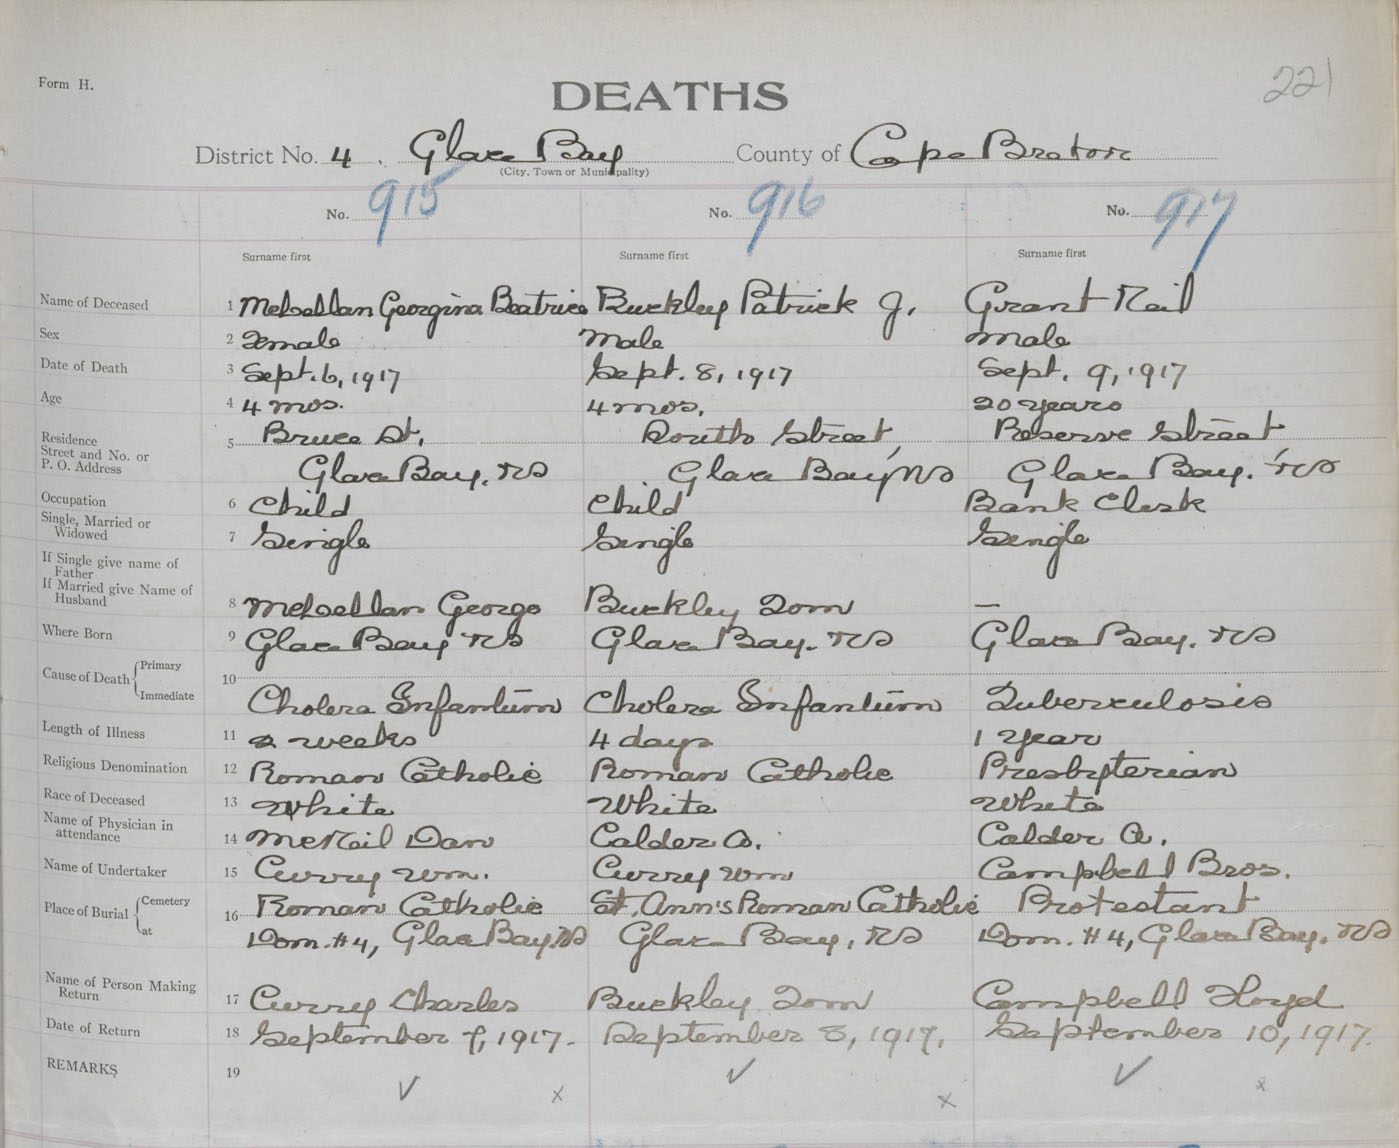 Form H.
DEATHS
221
District No. 4. Glace Bay County of Cape Breton
(City, Town or Municipality)
No. 915 No. 916 No. 917
Surname first Surname first Surname first
Name of Deceased 1 McLellan Georgina Beatrice Buckley Patrick J. Grant Neil
Sex 2 Female Male Male
Date of Death 3 Sept. 6, 1917 Sept. 8, 1917 Sept. 9, 1917
Age 4 4 mos. 4 mos. 20 years
Residence Street and No. or P. O. Address 5 Bruce St., South Street, Reserve Street,
Glace Bay, NS Glace Bay NS Glace Bay. NS
Occupation 6 Child Child Bank Clerk
Single, Married or Widowed 7 Single Single Single
If Single give name of Father
If Married give Name of Husband 8 McLellan George Buckley Tom —
Where Born 9 Glace Bay NS Glace Bay. NS Glace Bay. NS
Cause of Death { Primary 10
Immediate Cholera Infantum Cholera Infantum Tuberculosis
Length of Illness 11 2 weeks 4 days 1 year
Religious Denomination 12 Roman Catholic Roman Catholic Presbyterian
Race of Deceased 13 White White White
Name of Physician in attendance 14 McNeil Dan Calder A. Calder A.
Name of Undertaker 15 Curry Wm. Curry Wm Campbell Bros.
Place of Burial { Cemetery 16 Roman Catholic St. Ann's Roman Catholic Protestant
at Dom. #4, Glace Bay, NS Glace Bay, NS Dom. #4, Glace Bay. NS
Name of Person Making Return 17 Curry Charles Buckley Tom Campbell Floyd
Date of Return 18 September 7, 1917. September 8, 1917. September 10, 1917.
REMARKS 19